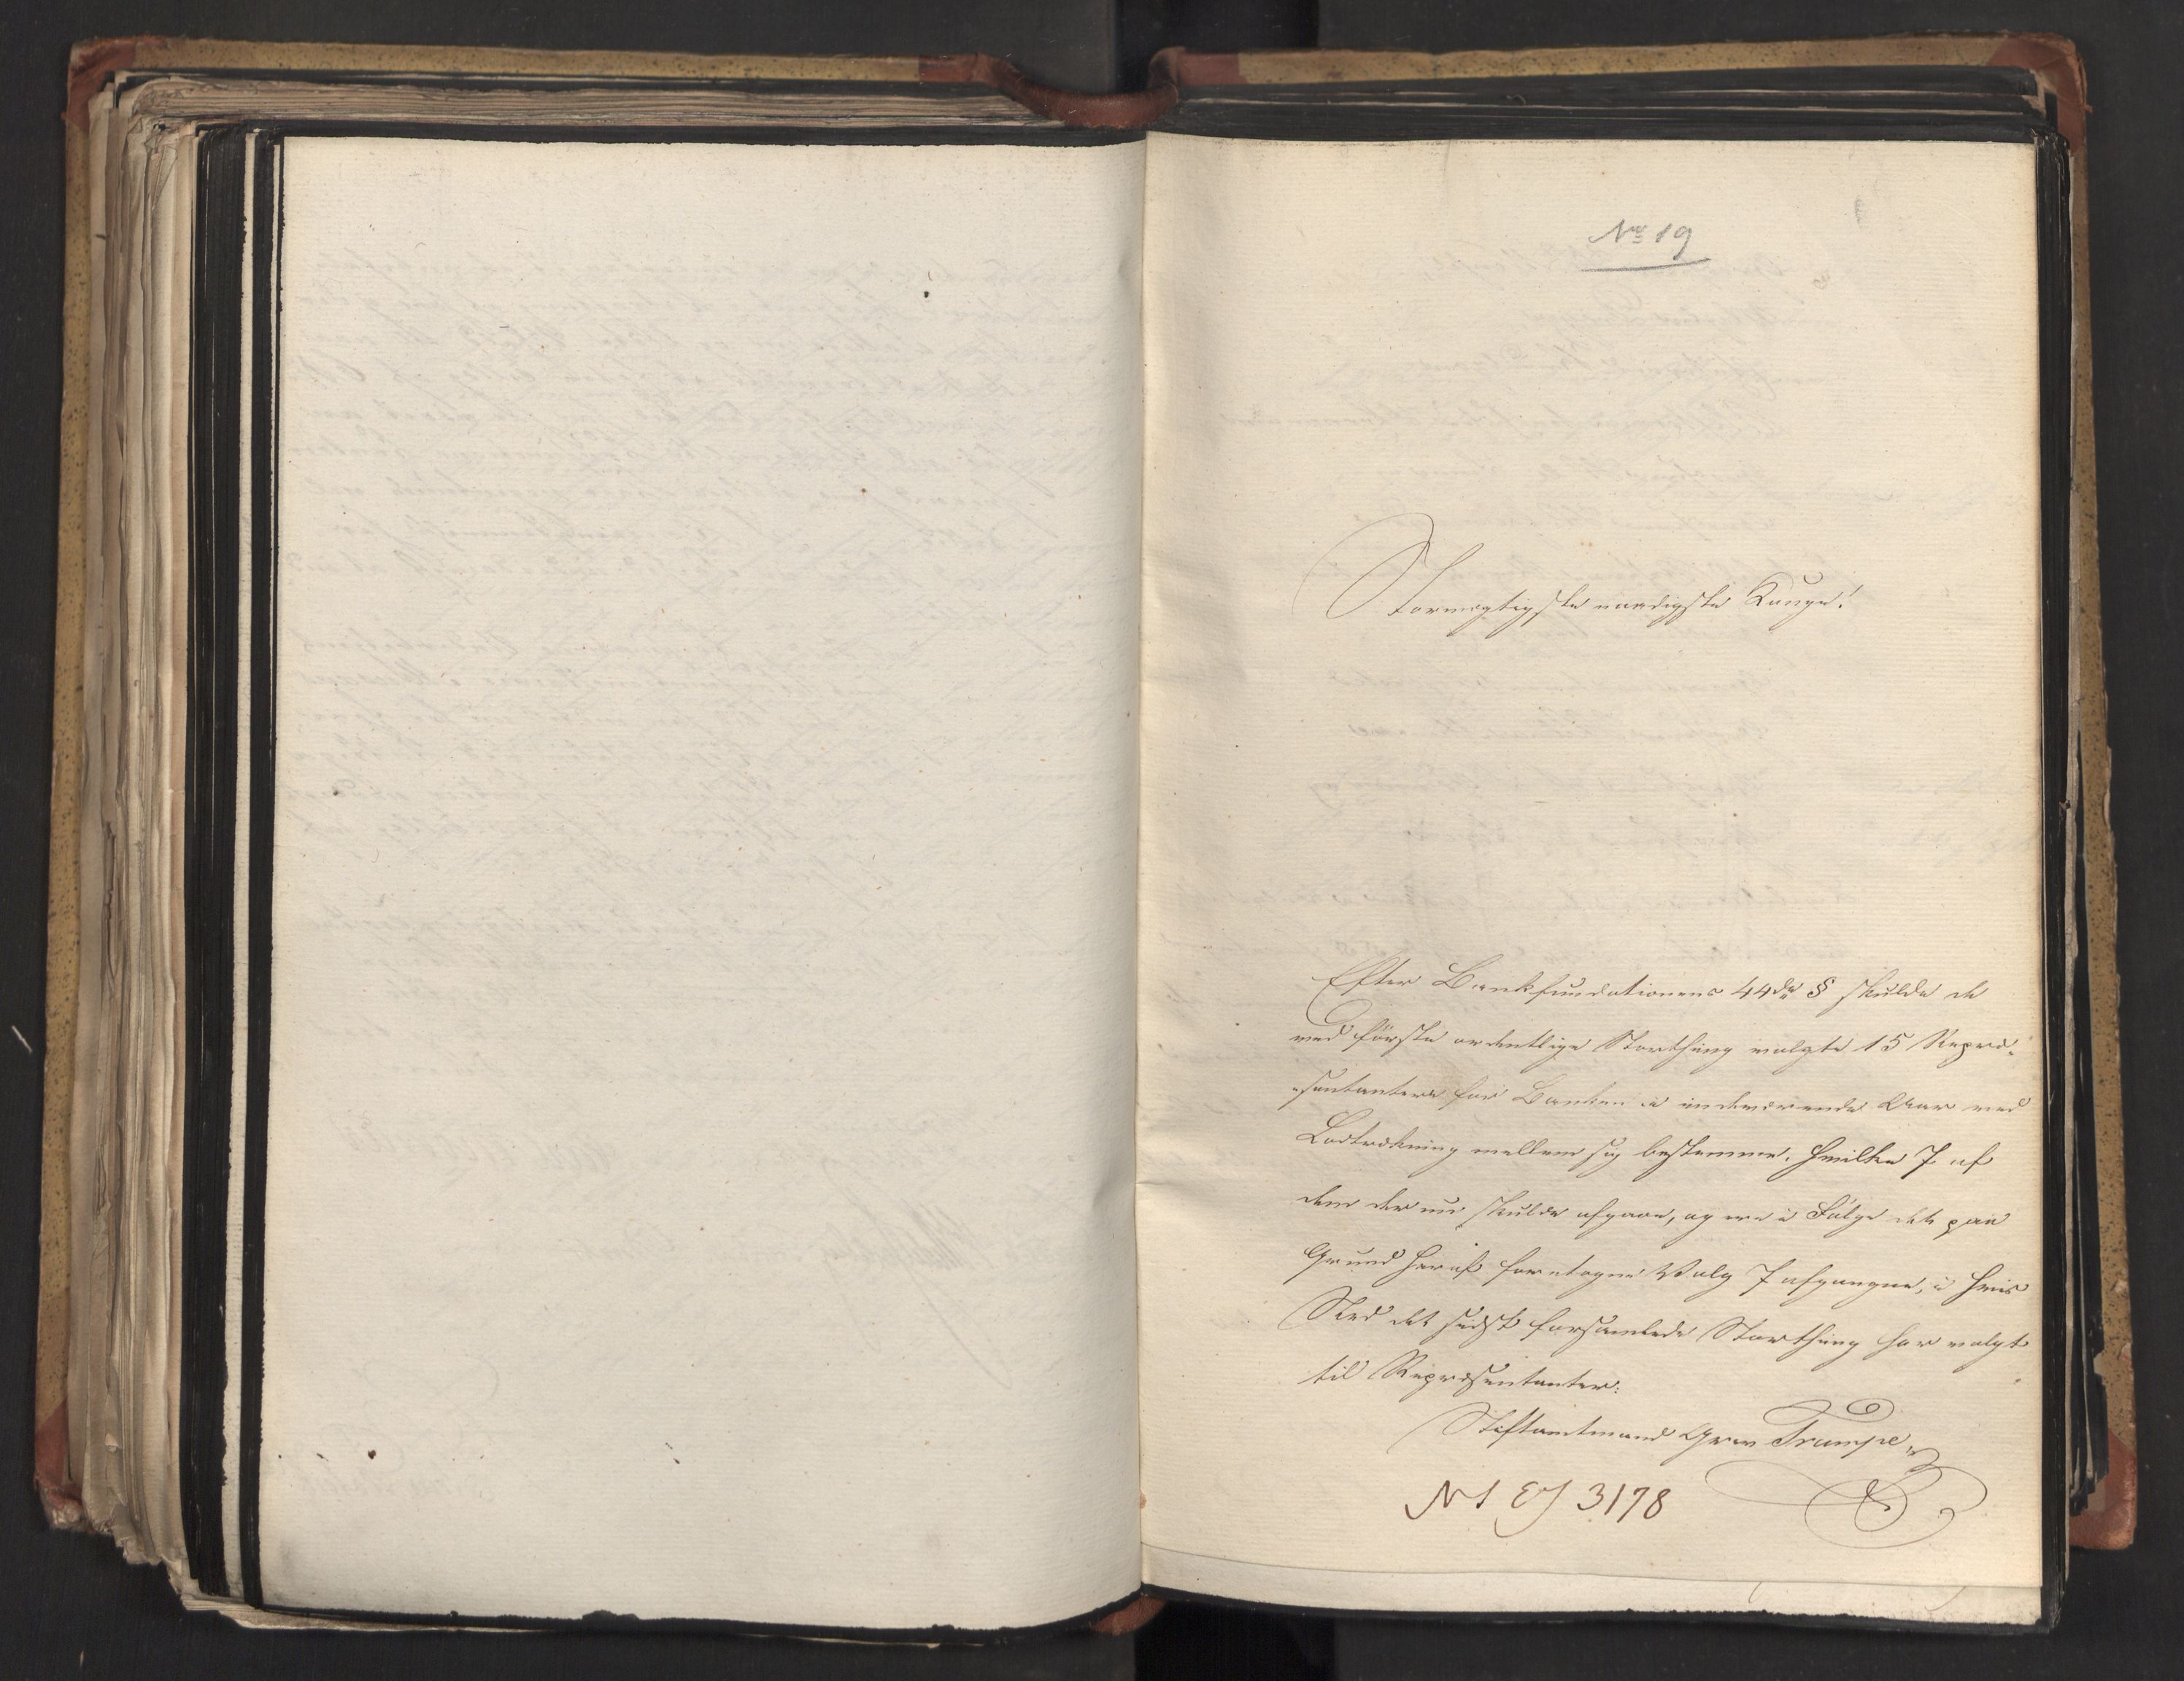 No 19
Stormægtigste naadigste Konge!
Efter Bankfundationens 44de § skulde de
ved förste ordentlige Storthing valgte 15 Repræ-
-sentantere for Banken i indeværende Aar ved
Lodtrækning mellem sig bestemme, hvilke 7 af
dem der nu skulde afgaae, og ere i Fölge det paa
Grund heraf foretagne Valg 7 afgangne, i hvis
Sted det sidst forsamlede Storthing har valgt
til Repræsentanter:
Stiftamtmand Grev Trampe,
N1 EJ 3178